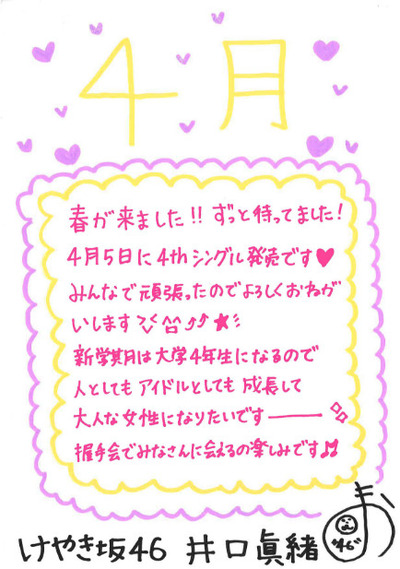 4月
春が来ました!! ずっと待ってました!
4月5日に4thシングル発売です♥
みんなで頑張ったのでよろしくおねが
いします ^^ ⤴⤴ ★ミ
新学期は大学4年生になるので
人としてもアイドルとしても成長して
大人な女性になりたいです———
握手会でみなさんに会えるの楽しみです♫
けやき坂46 井口眞緒
46